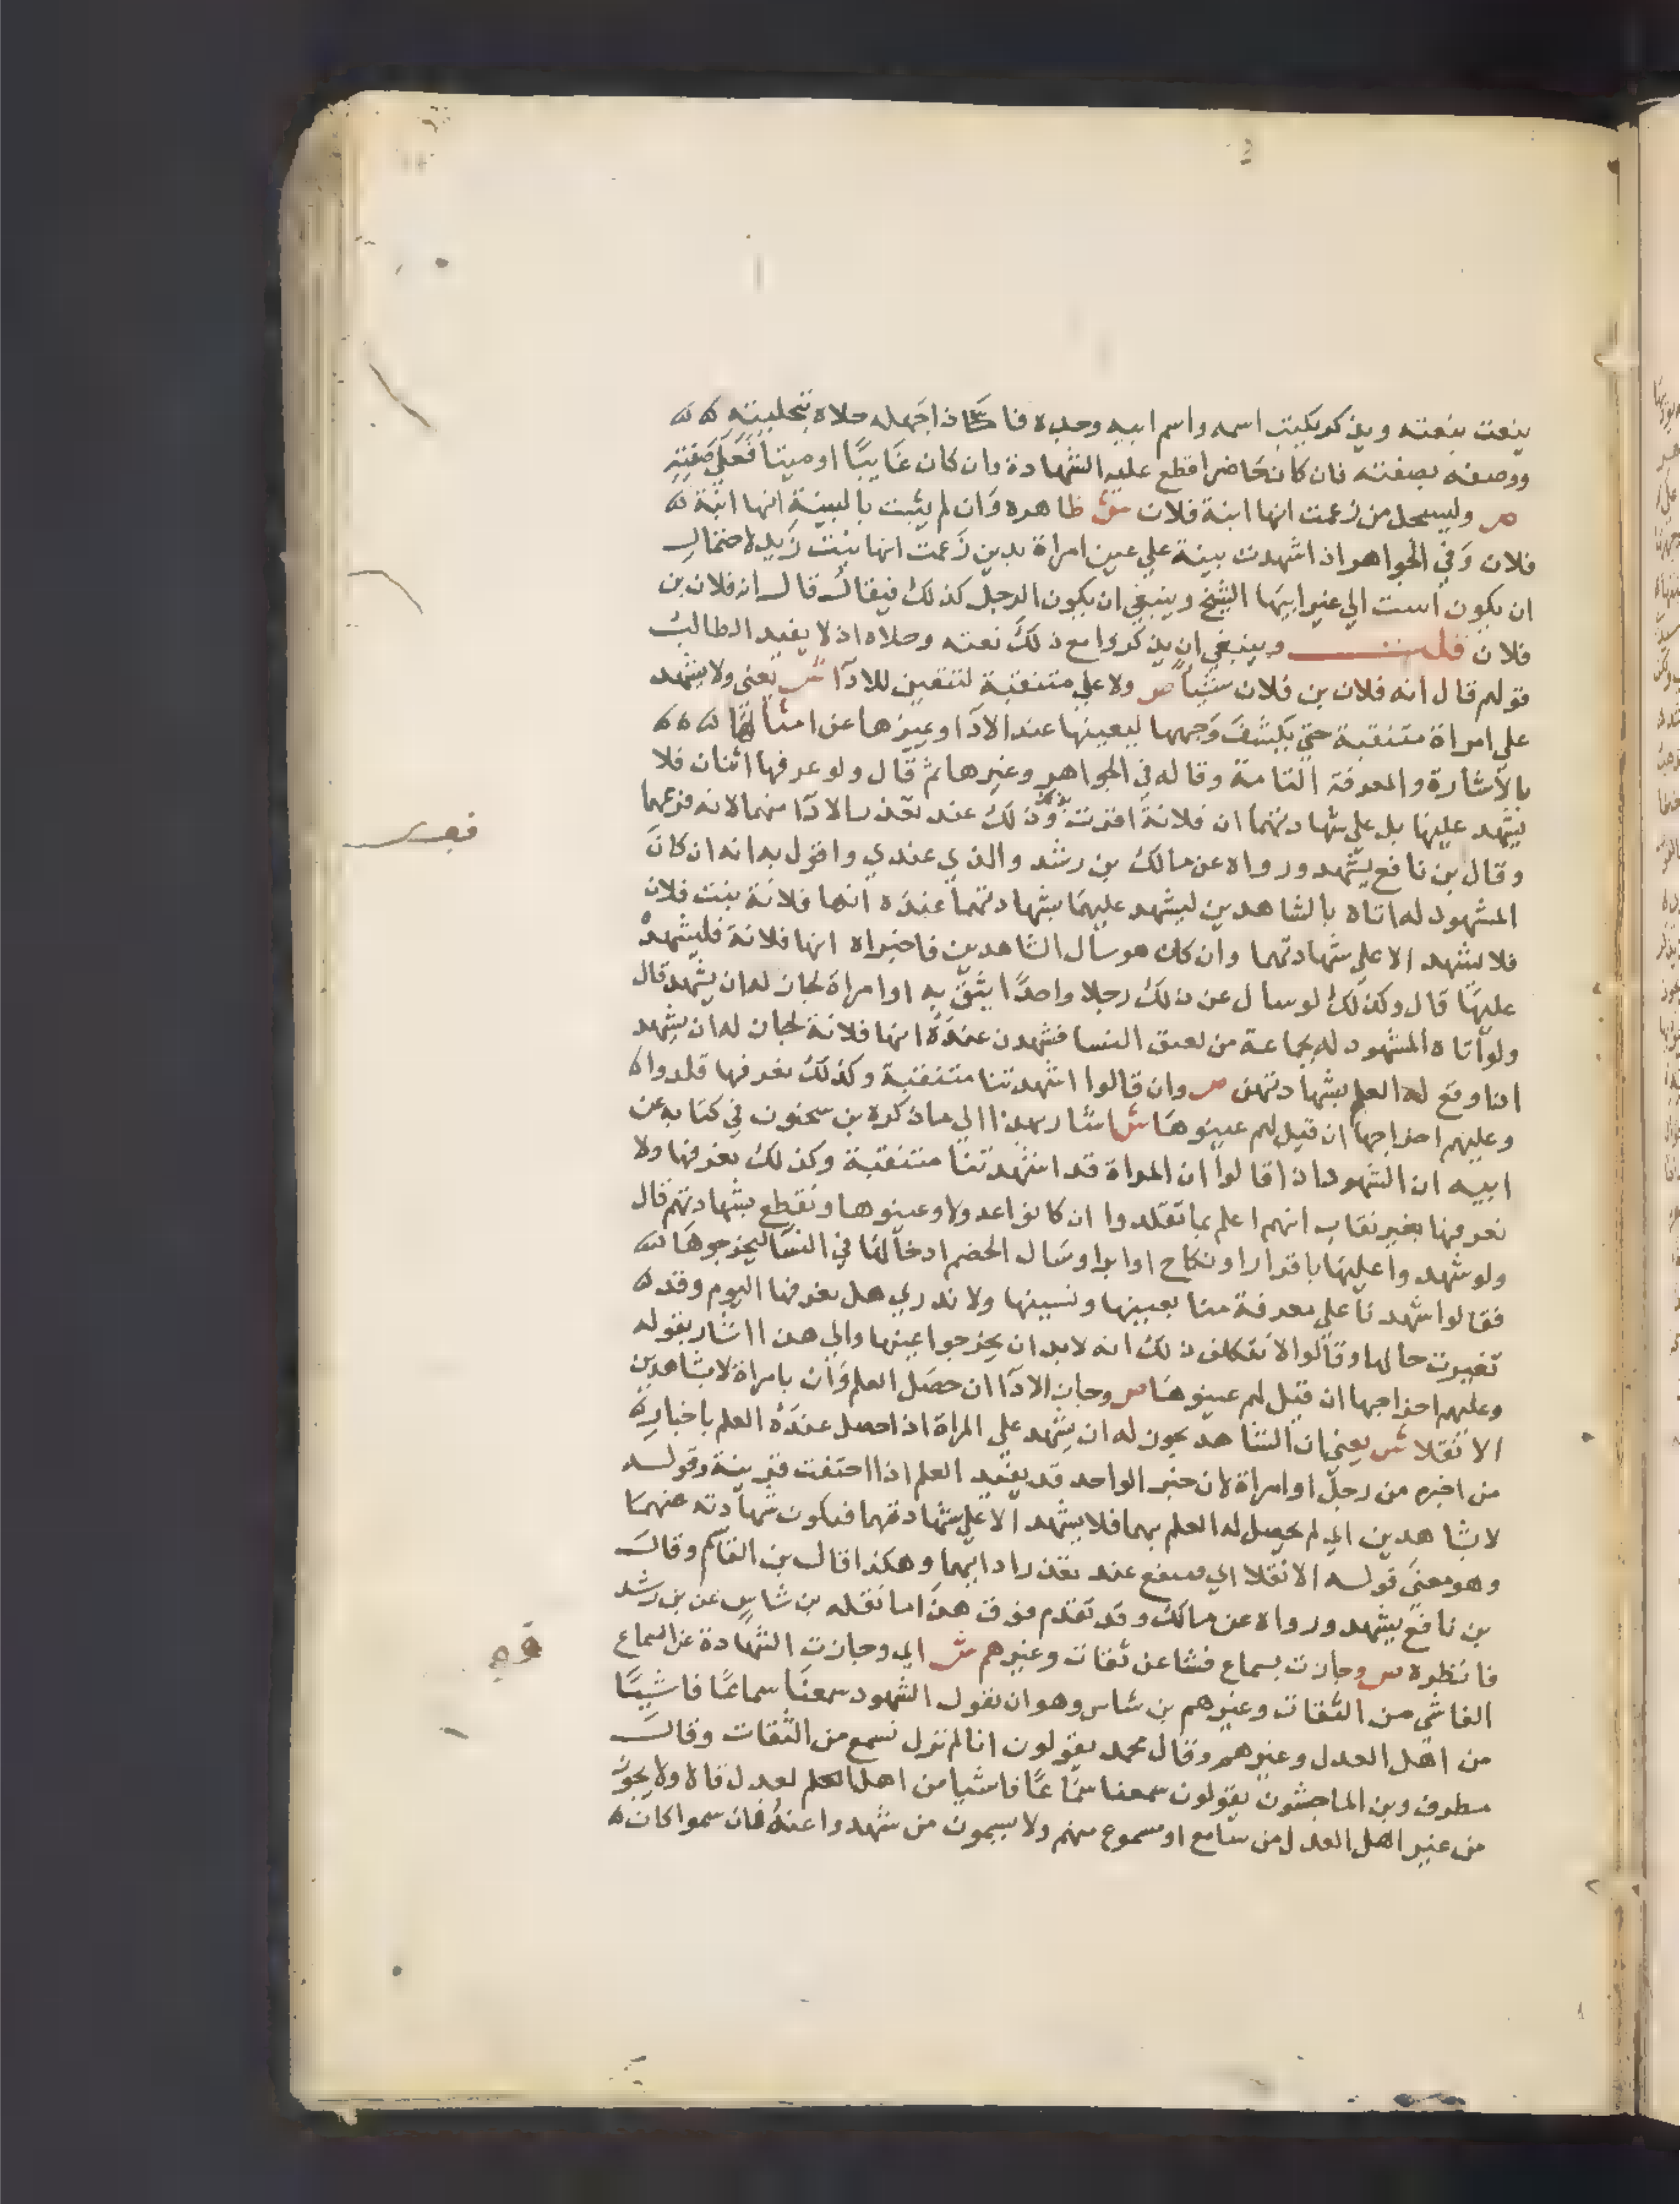 ينعت بنعته ويذكر يكتب اسمه واسم ابيه وجده فا كان اجهله حلاه بتحليته
ووصفه بصفته فان كان حاضرا قطع عليه الشهادة وان كان غايبا او ميتا فعلي صفته
ص وليسجل من زعمت انها ابنة فلان ش ظاهره وان لم يثبت بالبينة انها ابنة
فلان وفي الجواهر اذا شهدت بينة علي عين امراة بدين زعمت انها بنت زيد لاحتمال
ان يكون است الي غير ابيها الشيخ وينبغي ان يكون الرجل كذلك فيقال قال انه فلان بن
فلان قلت وينبغي ان يذكروا مع ذلك نعته وحلاه اذ لا يفيد الطالب
قولهم قال انه فلان بن فلان شيئا ص ولا علي متنقبة لتتعين للادا ش يعني ولا يشهد
علي امراة متنقبة حتي يكشف وجهها ليعينها عند الادا ويميزها عن امثالها
بالاشارة والمعرفة التامة وقاله في الجواهر وغيرها ثم قال ولو عرفها اثنان فلا
يشهد عليها بل علي شهادتهما ان فلانة اقرت وذلك عند تعذر الادا منهما لانه فرعهما
وقال بن نافع يشهد ورواه عن مالك بن رشد والذي عندي واقول به انه ان كان
المشهود له اتاه بالشاهدين ليشهد عليهما بشهادتهما عنده انها فلانة بنت فلان
فلا يشهد الا علي شهادتهما وان كان هو سال الشاهدين فاخبراه انها فلانة فليشهد
عليها قال وكذلك لو سال عن ذلك رجلا واحدا يثق به او امراة لجاز له ان يشهد قال
ولو اتاه المشهود له بجماعة من لعيق النسا فشهدن عنده انها فلانة لجاز له ان يشهد
اذا وقع له العلم بشهادتهن ص وان قالوا اشهدتنا متنقبة وكذلك نعرفها قلدوا
وعليهم اخراجها ان قيل لهم عينوها ش اشار بهذا الي ما ذكره بن سحنون في كتابه عن
ابيه ان الشهود اذا قالوا ان المراة قد اشهدتنا متنقبة وكذلك نعرفها ولا
نعرفها بغير نقاب انهم اعلم بما تقلدوا ان كانوا عدولا وعينوها ونقطع بشهادتهم قال
ولو شهدوا عليها باقرار او نكاح او ابرا وسال الخصم ادخالها في النسا ليخرجوها
فقالوا شهدنا علي معرفة منا بعينها ونسبها ولا ندري هل نعرفها اليوم وقد
تغيرت حالها وقالوا لا نتكلف ذلك انه لا بد ان يخرجوا عينها والي هذا اشار بقوله
وعليهم اخراجها ان قيل لهم عينوها ص وجاز الادا ان حصل العلم وان بامراة لا بشاهدين
الا نقلا ش يعني ان الشاهد يجوز له ان يشهد علي المراة اذا حصل عنده العلم باخبار
من اخبره من رجل او امراة لان خبر الواحد قد يفيد العلم اذا احتفت قرينة وقوله
لا بشاهدين اي لم يحصل له العلم بهما فلا يشهد الا علي شهادتهما فتكون شهادته عنهما
وهو معني قوله الا نقلا اي فينفع عند تعذر ادايهما وهكذا قال بن القاسم وقال
بن نافع يشهد ورواه عن مالك وقد تقدم فوق هذا ما نقله بن شاس عن بن رشد
فانظره ص وجازت بسماع فشا عن ثقات وغيرهم ش اي وجازت الشهادة عن السماع
الفاشي من الثقات وغيرهم بن شاس وهو ان يقول الشهود سمعنا سماعا فاشيا
من اهل العدل وغيرهم وقال محمد يقولون انا لم نزل نسمع من الثقات وقال
مطرف وبن الماجشون يقولون سمعنا سماعا فاشيا من اهل العلم لعدل قالا ولا يجوز
من غير اهل العدل من سامع او مسموع منهم ولا يسمون من شهدوا عنه فان سموا كان